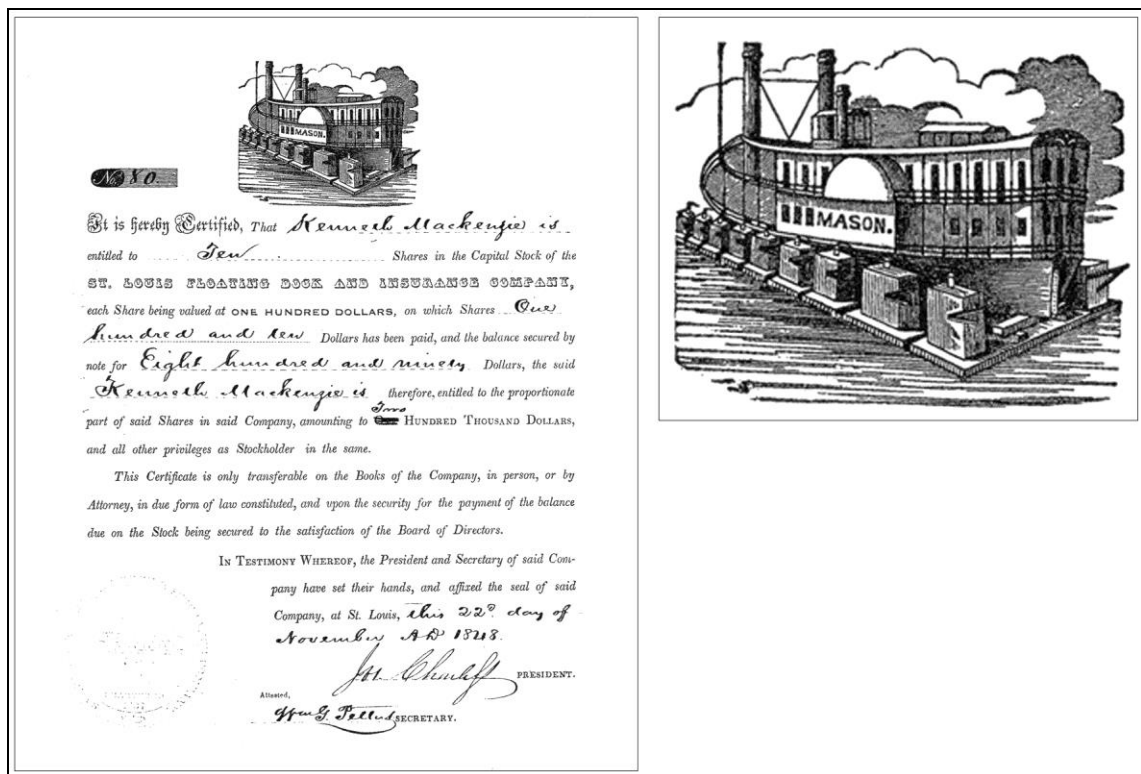 MASON.
No. 80.
It is hereby Certified, That Kenneth Mackenzie is
entitled to Ten Shares in the Capital Stock of the
ST. LOUIS FLOATING DOCK AND INSURANCE COMPANY,
each Share being valued at ONE HUNDRED DOLLARS, on which Shares One
hundred and ten Dollars has been paid, and the balance secured by
note for Eight hundred and ninety Dollars, the said
Kenneth Mackenzie is therefore, entitled to the proportionate
Two
part of said Shares in said Company, amounting to One HUNDRED THOUSAND DOLLARS,
and all other privileges as Stockholder in the same.
This Certificate is only transferable on the Books of the Company, in person, or by
Attorney, in due form of law constituted, and upon the security for the payment of the balance
due on the Stock being secured to the satisfaction of the Board of Directors.
IN TESTIMONY WHEREOF, the President and Secretary of said Com-
pany have set their hands, and affixed the seal of said
Company, at St. Louis, this 22d. day of
November AD 1848.
PRESIDENT.
Attested,
SECRETARY.
MASON.